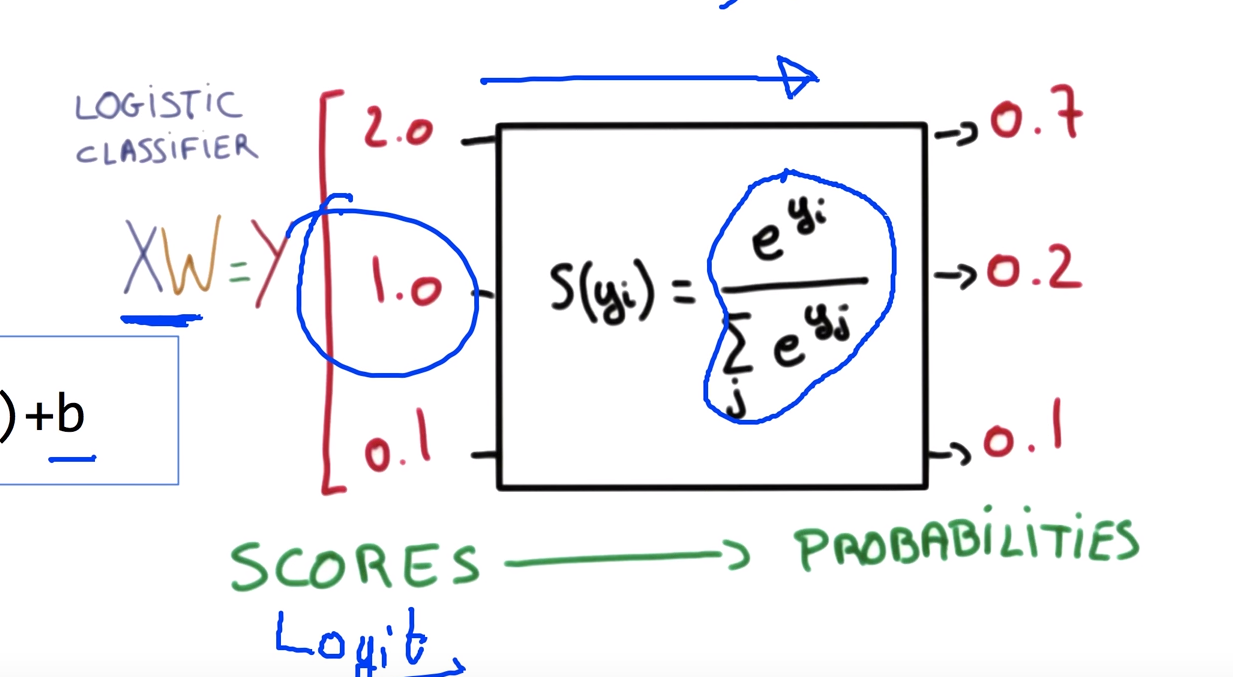 LOGISTIC
CLASSIFIER
XW = Y
2.0
1.0
0.1
S(yᵢ) = e^{yᵢ} / Σⱼ e^{yⱼ}
0.7
0.2
0.1
)+b
SCORES → PROBABILITIES
Logit